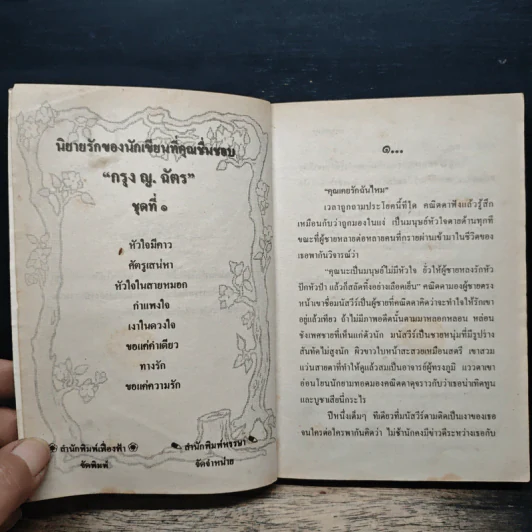 นิยายรักของนักเขียนที่คุณชื่นชอบ
“กรุง ญ. ฉัตร”
ชุดที่ ๑
หัวใจมีคาว
ศัตรูเสน่หา
หัวใจในสายหมอก
กำแพงใจ
เงาในดวงใจ
ขอแค่คำเดียว
ทางรัก
ขอแค่ความรัก
สำนักพิมพ์เฟื่องฟ้า
จัดพิมพ์
สำนักพิมพ์พรรษา
จัดจำหน่าย
๑...
“คุณเคยรักฉันไหม”
เวลาถูกถามประโยคนี้ทีใด คณิตดาฟังแล้วรู้สึก
เหมือนกับว่าถูกมองในแง่ เป็นมนุษย์หัวใจตายด้านทุกที
ขณะที่ผู้ชายหลายต่อหลายคนที่กรายผ่านเข้ามาในชีวิตของ
เธอพากันวิจารณ์ว่า
“คุณนะเป็นมนุษย์ไม่มีหัวใจ ยั่วให้ผู้ชายหลงรักหัว
ปักหัวปำ แล้วก็สลัดทิ้งอย่างเลือดเย็น” คณิตดามองผู้ชายตรง
หน้าเขาชื่อมนัสวีร์เป็นผู้ชายที่คณิตดาคิดว่าจะทำใจให้รักเขา
อยู่แล้วเทียว ถ้าไม่มีภาพอดีตนั้นตามมาหลอกหลอน หล่อน
ชังเพศชายที่เห็นแก่ตัวนัก มนัสวีร์เป็นชายหนุ่มที่มีรูปร่าง
สันทัดไม่สูงนัก ผิวขาวใบหน้าสะสวยเหมือนสตรี เขาสวม
แว่นสายตาที่ทำให้ดูแล้วสมเป็นอาจารย์ผู้ทรงภูมิ แววตาเขา
อ่อนโยนนักยามทอดมองคณิตดาดุจราวกับว่าเธอน่าเทิดทูน
และบูชาเสียนี่กระไร
ปีหนึ่งเต็มๆ ทีเดียวที่มนัสวีร์ตามติดเป็นเงาของเธอ
จนใครต่อใครพากันคิดว่า ไม่ช้านักคงมีข่าวดีระหว่างเธอกับ